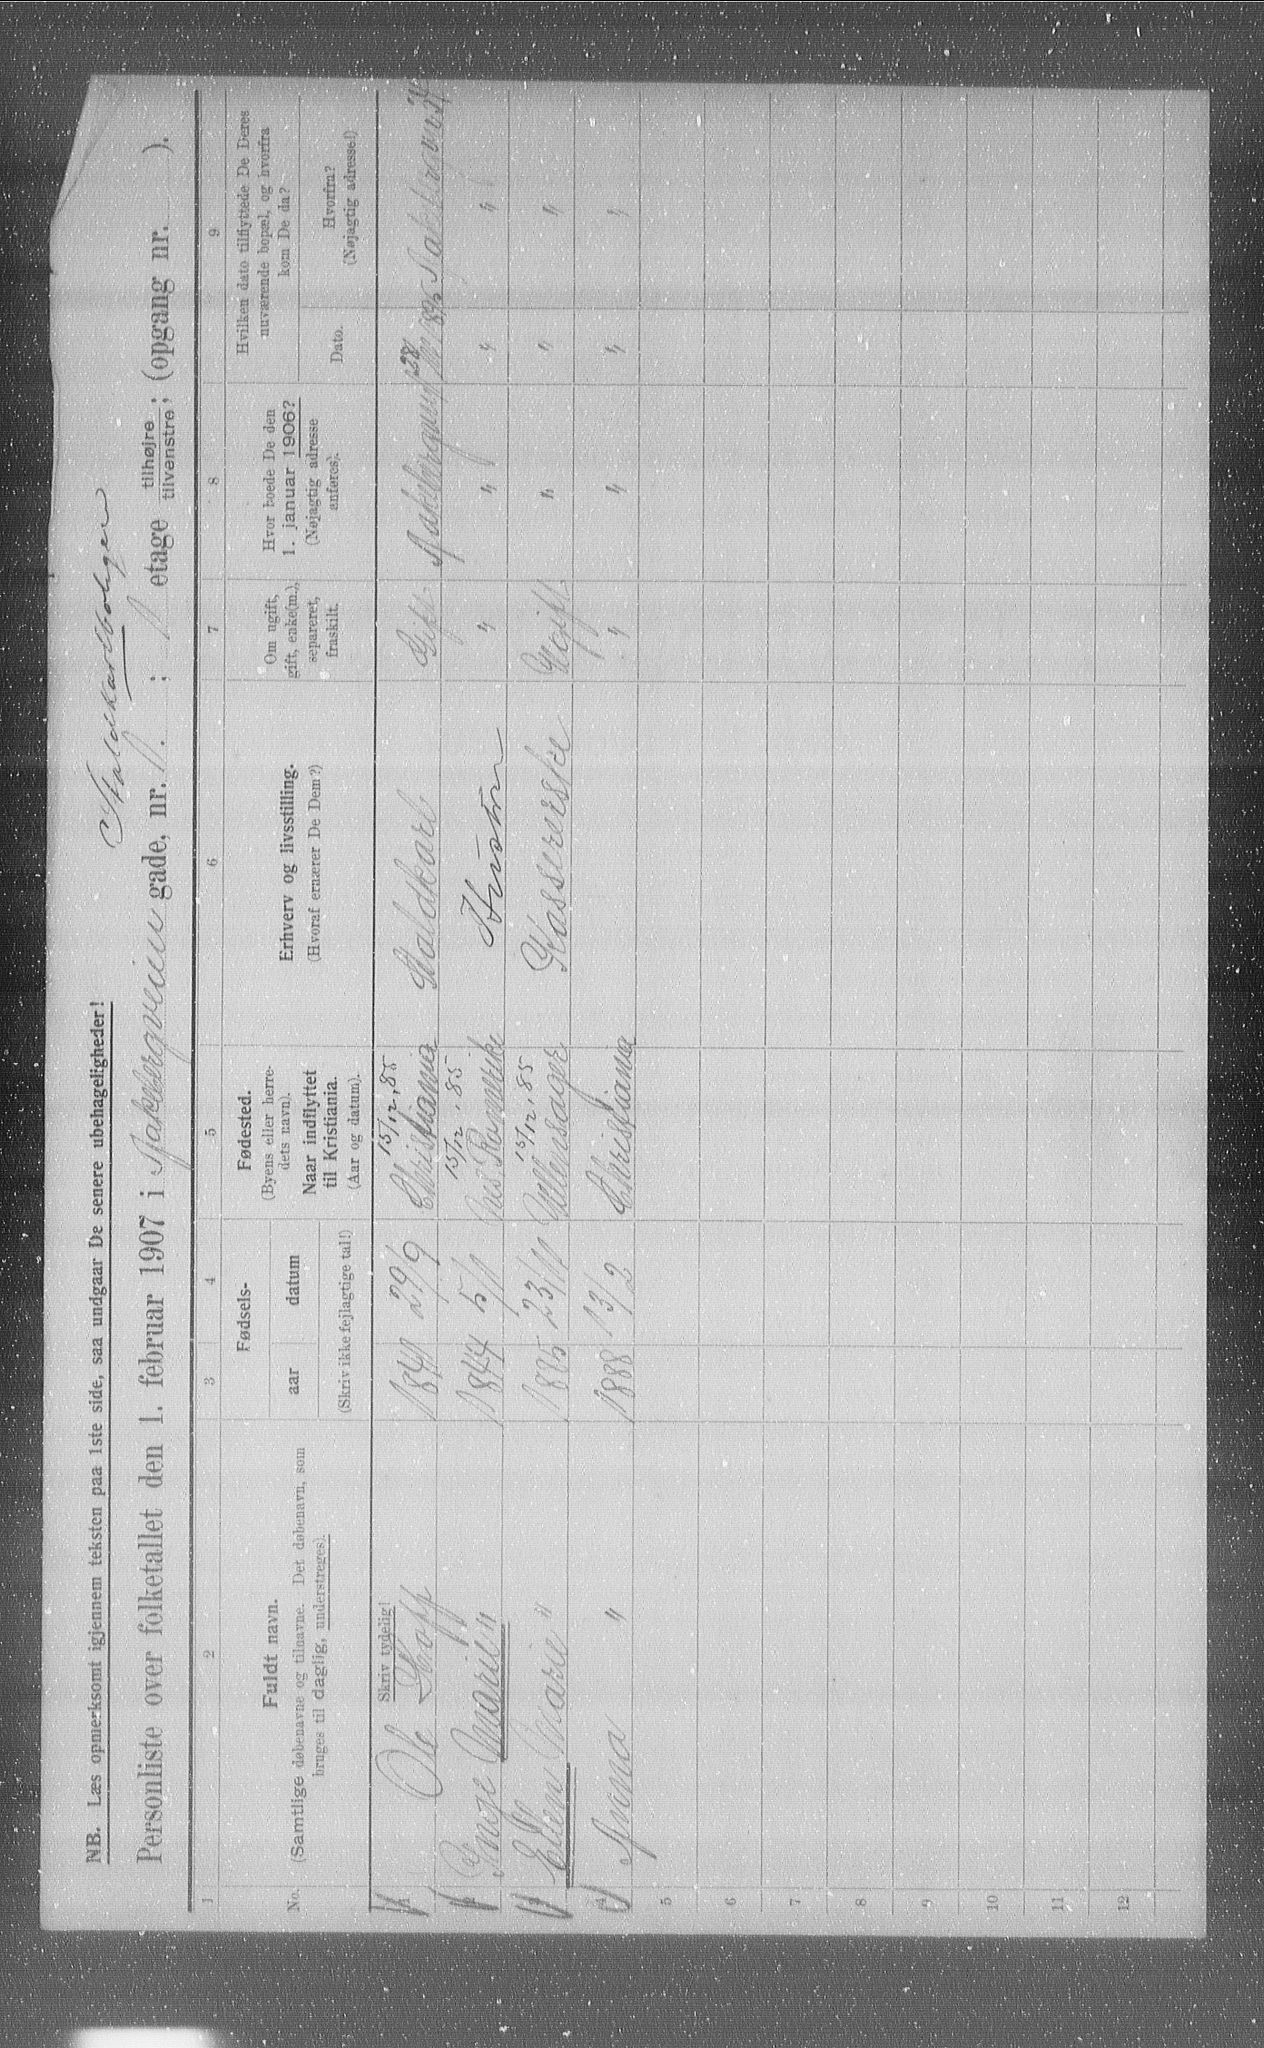 NB. Læs opmerksomt igjennem teksten paa 1ste side, saa undgaar De senere ubehageligheder!
Staldkarlboliger
Personliste over folketallet den 1. februar 1907 i Aakebergveien gade, nr. 11. ; 1 etage tilhøjre tilvenstre; (opgang nr. ).
1 2 3 4 5 6 7 8 9
No.
Fuldt navn.
(Samtlige døbenavne og tilnavne. Det døbenavn, som
bruges til daglig, understreges).
Fødsels-
aar datum
(Skriv ikke fejlagtige tal!)
Fødested.
(Byens eller herre-
dets navn).
Naar indflyttet
til Kristiania.
(Aar og datum).
Erhverv og livsstilling.
(Hvoraf ernærer De Dem?)
Om ugift,
gift, enke(m.),
separeret,
fraskilt.
Hvor boede De den
1. januar 1906?
(Nøjagtig adresse
anføres).
Hvilken dato tilflyttede De Deres
nuværende bopæl, og hvorfra
kom De da?
Dato.
Hvorfra?
(Nøjagtig adresse!)
Skriv tydelig!
15/12.85
1 Ole Hoff 1841 29/9 Christiania Staldkarl Gift
15/12.85
2 Inge Marie " 1844 5/11 Nes Romerike Hustru " " " "
15/12.85
3 Ellen Marie " 1885 23/11 Ullensager Kassererske Ugift " " "
4 Anna " 1888 13/2 Christiania " " " "
5
6
7
8
9
10
11
12